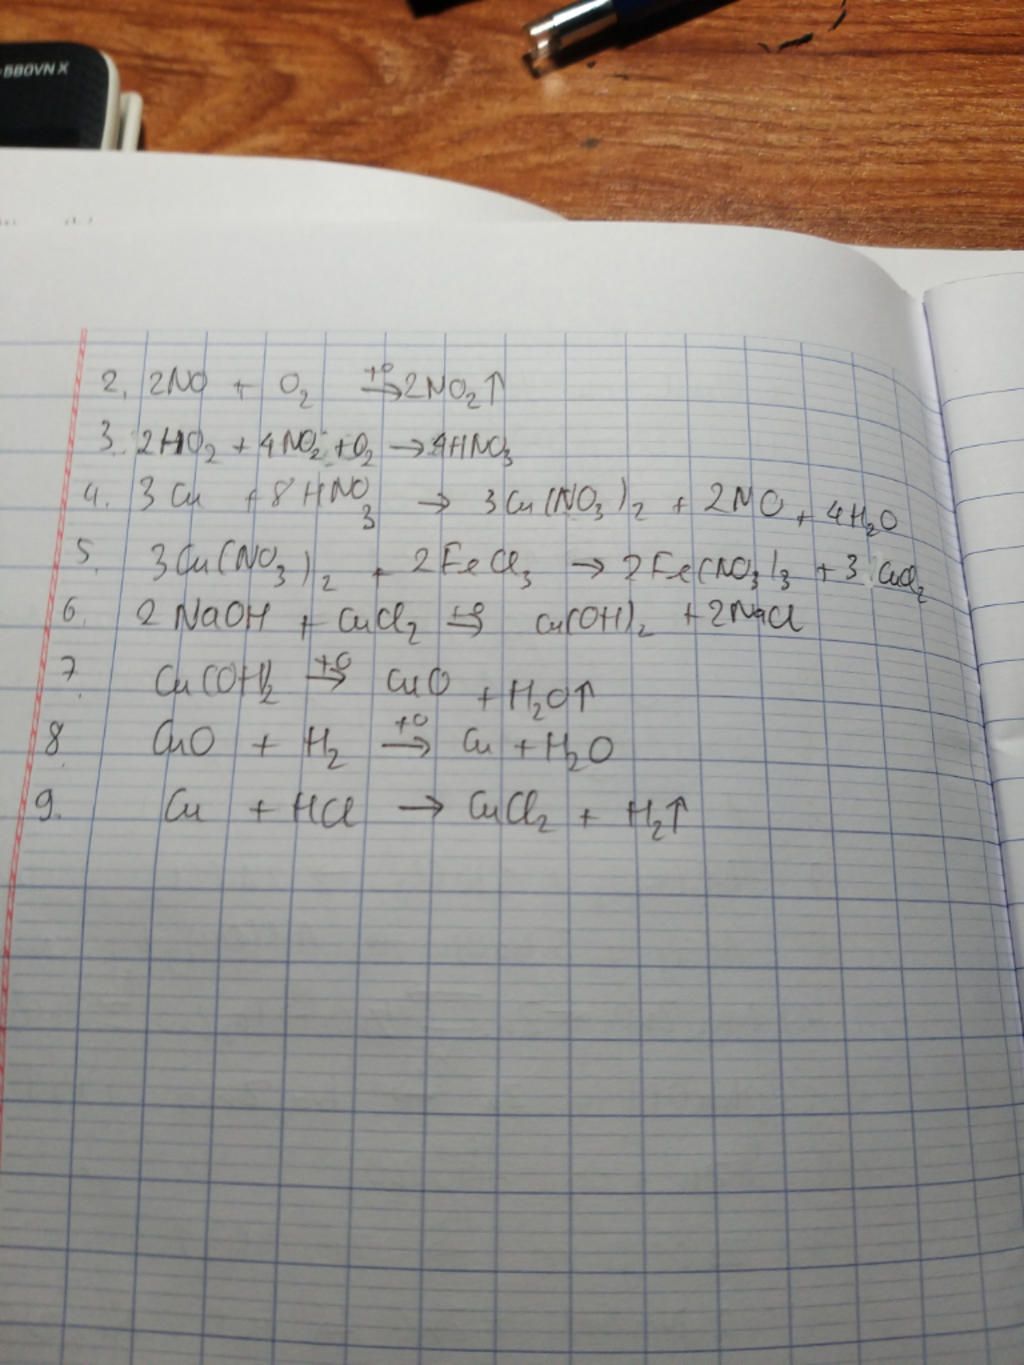 580VN X
2. 2NO + O2 →t° 2NO2↑
3. 2HO2 + 4NO2 + O2 → 4HNO3
4. 3Cu + 8HNO3 → 3Cu(NO3)2 + 2NO + 4H2O
5. 3Cu(NO3)2 + 2FeCl3 → 2Fe(NO3)3 + 3CuCl2
6. 2NaOH + CuCl2 →t° Cu(OH)2 + 2NaCl
7. Cu(OH)2 →t° CuO + H2O↑
8. CuO + H2 →t° Cu + H2O
9. Cu + HCl → CuCl2 + H2↑